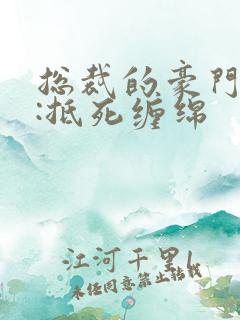 总裁的豪门
:抵死缠绵
江河千里1
未经同意禁止转载